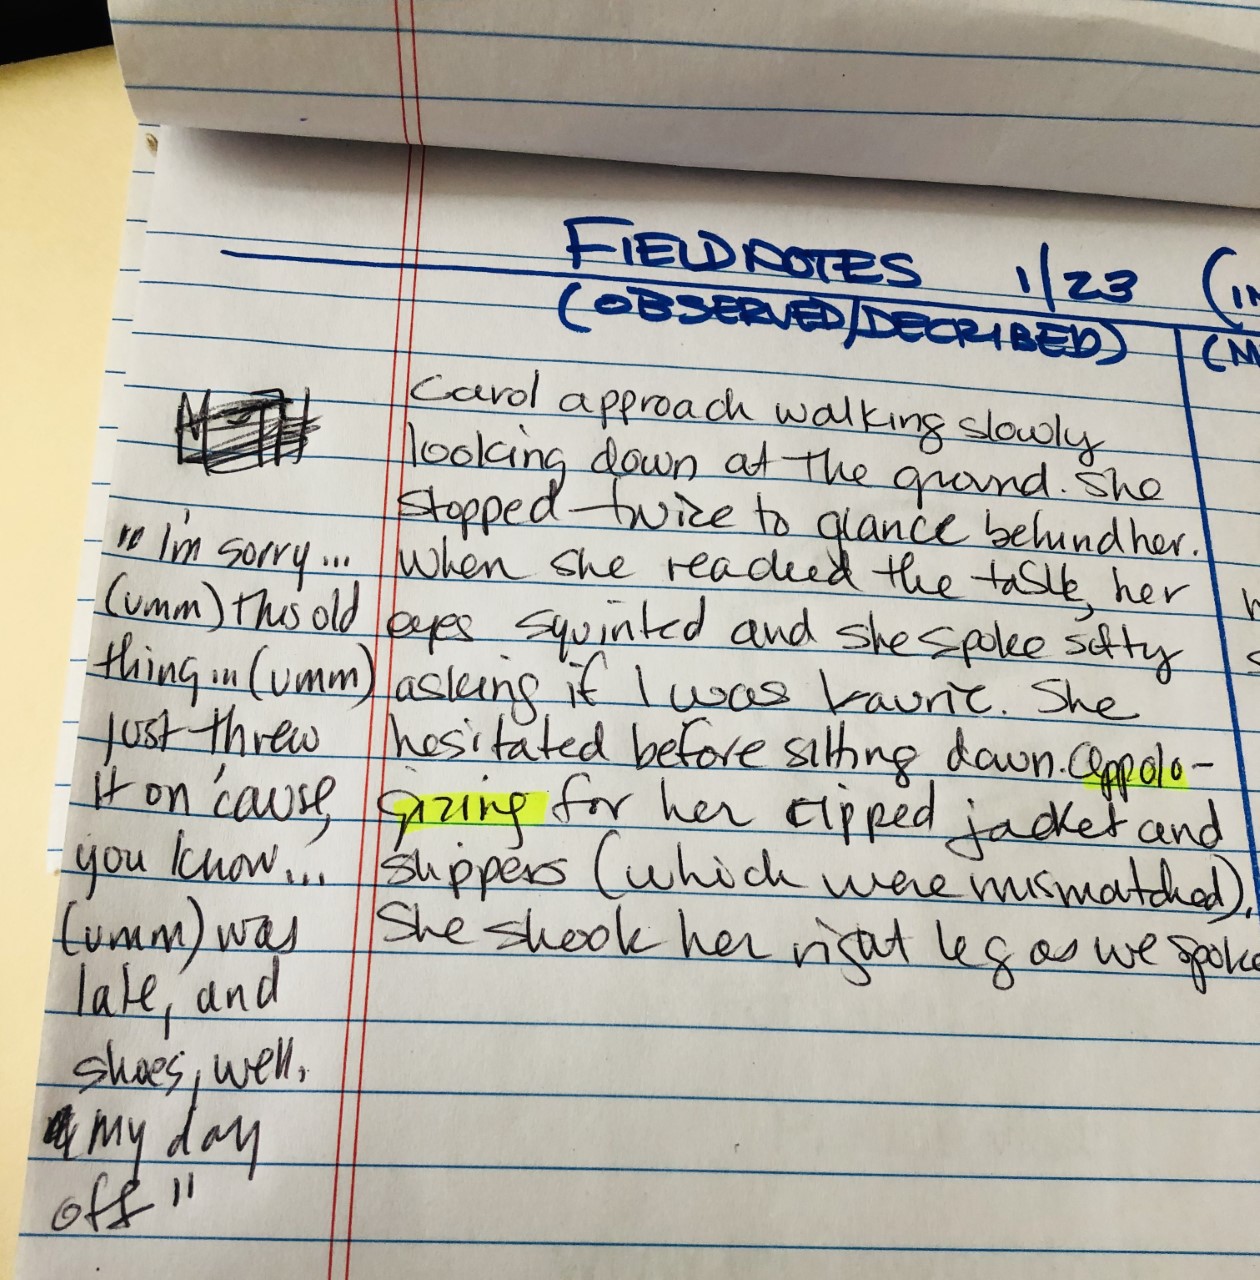 FIELDNOTES 1/23 (IN
(OBSERVED/DECRIBED) (M
Carol approach walking slowly
looking down at the ground. She
stopped twice to glance behind her.
When she reached the table, her
eyes squinted and she spoke softy
asking if I was Laurie. She
hesitated before sitting down. Appolo-
gizing for her ripped jacket and
slippers (which were mismatched).
She shook her right leg as we spoke
"I'm sorry...
(umm) this old
thing in (umm)
just threw
it on 'cause,
you know...
(umm) was
late, and
shoes, well,
my day
off"